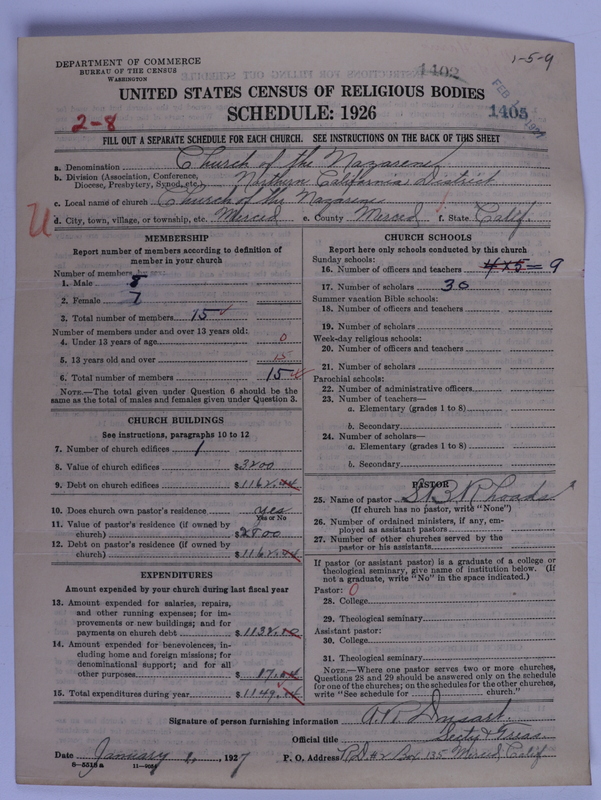 DEPARTMENT OF COMMERCE
BUREAU OF THE CENSUS
WASHINGTON
1402
1-5-9
UNITED STATES CENSUS OF RELIGIOUS BODIES
SCHEDULE: 1926
2-8
FEB
1927
1405
FILL OUT A SEPARATE SCHEDULE FOR EACH CHURCH. SEE INSTRUCTIONS ON THE BACK OF THIS SHEET
a. Denomination Church of the Nazarene
b. Division (Association, Conference, Diocese, Presbytery, Synod, etc.) Northern California District
c. Local name of church Church of the Nazarene
U
d. City, town, village, or township, etc. Merced e. County Merced f. State Calif.
MEMBERSHIP
Report number of members according to definition of
member in your church
Number of members by sex:
1. Male 8
2. Female 7
3. Total number of members 15
Number of members under and over 13 years old:
4. Under 13 years of age 0
5. 13 years old and over 15
6. Total number of members 15
NOTE.—The total given under Question 6 should be the
same as the total of males and females given under Question 3.
CHURCH BUILDINGS
See instructions, paragraphs 10 to 12
7. Number of church edifices 1
8. Value of church edifices $3200
9. Debt on church edifices $1162.44
10. Does church own pastor's residence yes
Yes or No
11. Value of pastor's residence (if owned by
church) $2800
12. Debt on pastor's residence (if owned by
church) $1162.44
EXPENDITURES
Amount expended by your church during last fiscal year
13. Amount expended for salaries, repairs,
and other running expenses; for im-
provements or new buildings; and for
payments on church debt $1132.
14. Amount expended for benevolences, in-
cluding home and foreign missions; for
denominational support; and for all
other purposes $17.
15. Total expenditures during year $1149.
CHURCH SCHOOLS
Report here only schools conducted by this church
Sunday schools:
16. Number of officers and teachers 4 x 5 = 9
17. Number of scholars 30
Summer vacation Bible schools:
18. Number of officers and teachers
19. Number of scholars
Week-day religious schools:
20. Number of officers and teachers
21. Number of scholars
Parochial schools:
22. Number of administrative officers
23. Number of teachers—
a. Elementary (grades 1 to 8)
b. Secondary
24. Number of scholars—
a. Elementary (grades 1 to 8)
b. Secondary
PASTOR
25. Name of pastor S. B. Rhoads
(If church has no pastor, write "None")
26. Number of ordained ministers, if any, em-
ployed as assistant pastors
27. Number of other churches served by the
pastor or his assistants
If pastor (or assistant pastor) is a graduate of a college or
theological seminary, give name of institution below. (If
not a graduate, write "No" in the space indicated.)
Pastor: 0
28. College
29. Theological seminary
Assistant pastor:
30. College
31. Theological seminary
NOTE.—Where one pastor serves two or more churches,
Questions 28 and 29 should be answered only on the schedule
for one of the churches; on the schedules for the other churches,
write "See schedule for church."
Signature of person furnishing information A. R.
Official title Secty & Treas
Date January 1, 1927 P. O. Address R.D. #2 Box 135 Merced, Calif
8-5518 a